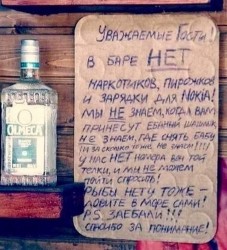 OLMECA
Уважаемые Гости!
В баре НЕТ
наркотиков, пирожков
и зарядки для Nokia!
Мы не знаем, когда вам
принесут ебаный шашлык,
не знаем, где снять бабу
У нас НЕТ номера вон той
телки, и мы не можем
пойти спросить!
Рыбы нету тоже –
ловите в море сами!
P.S. Заебали!!!
Спасибо за понимание!